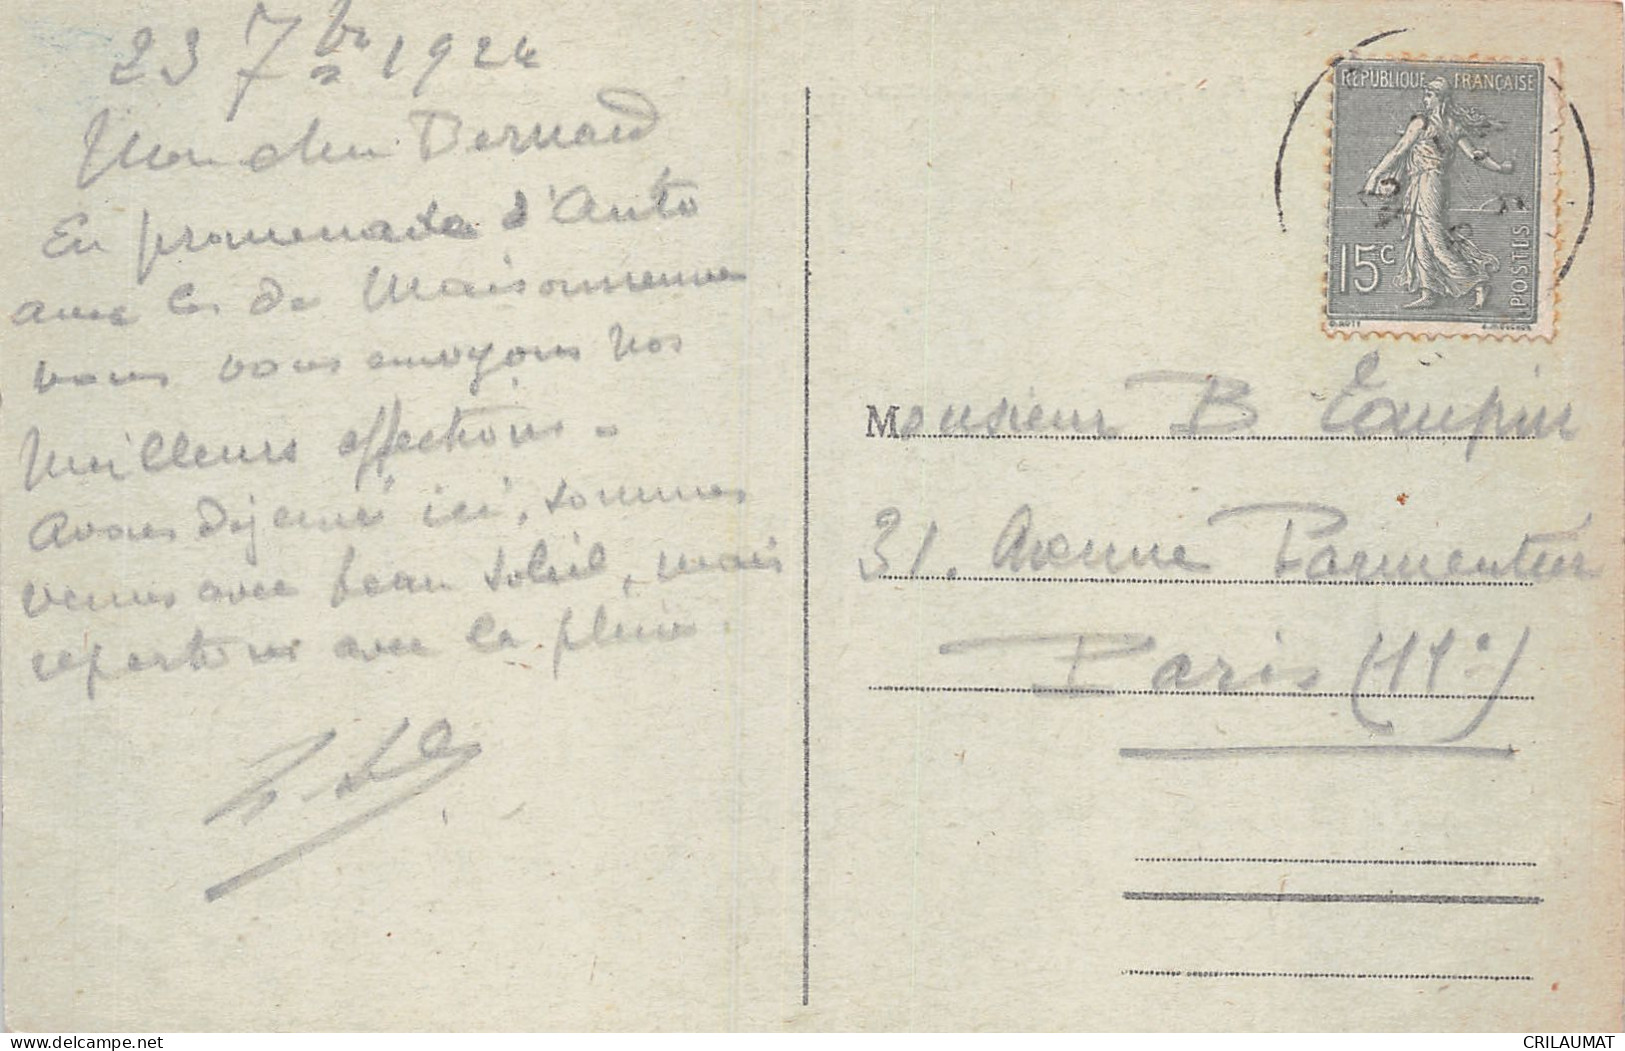 23 7bre 1924
Mon cher Bernard
En promenade d'Auto
avec les de Maisonneuve
vous envoyons nos
Meilleurs affections.
Avons déjeuné ici, sommes
venus avec beau soleil, mais
repartons avec la pluie.
REPUBLIQUE FRANÇAISE
15c
POSTES
Monsieur B Taupin
31. Avenue Parmentier
Paris (11e)
CRILAUMAT